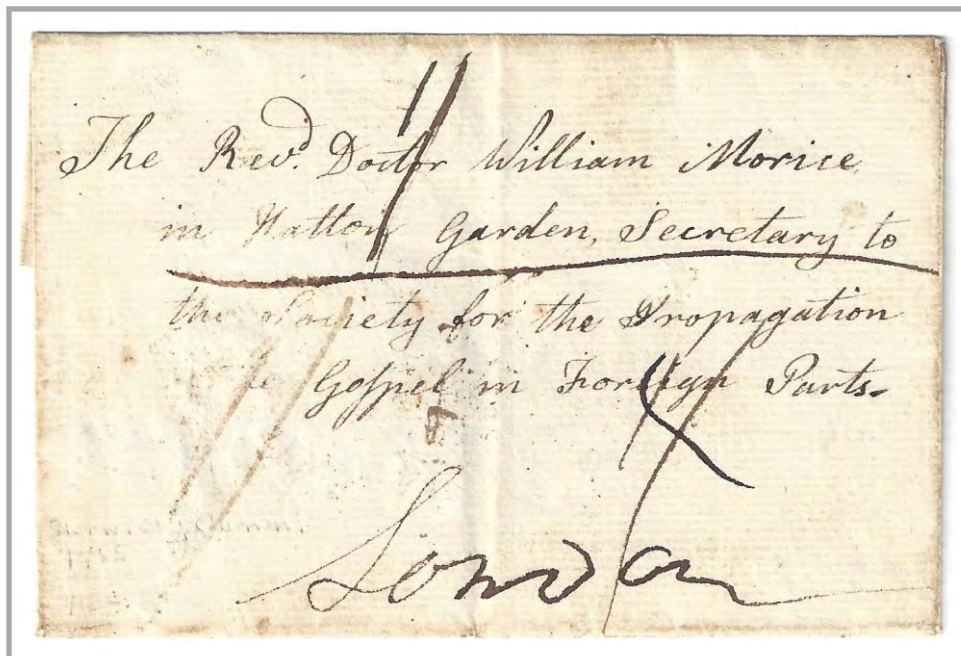 The Revd. Doctor William Morice
in Hatton Garden, Secretary to
the Society for the Propagation
Gospel in Foreign Parts.
London